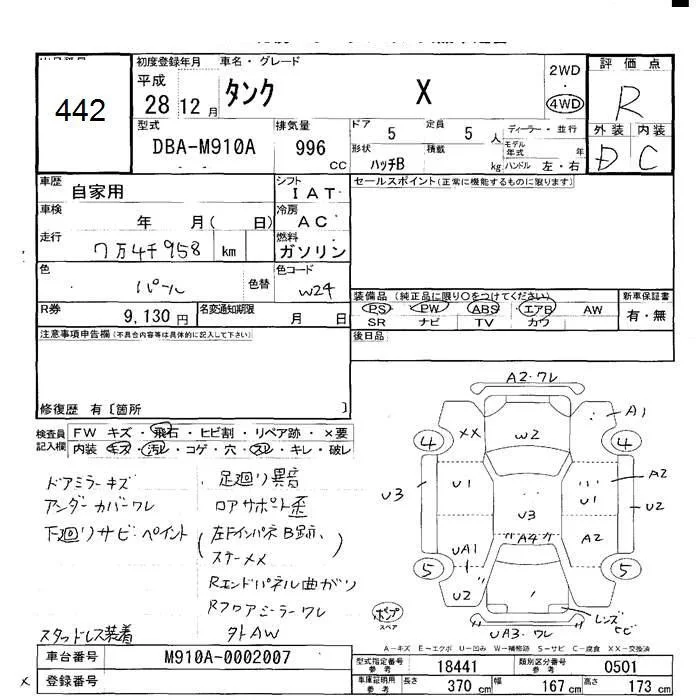 442
初度登録年月
平成
28 12 月
車名・グレード
タンク X
2WD
4WD
評価点
R
外装 内装
D C
型式
DBA-M910A
排気量
996
CC
ドア
5
定員
5
人
形状
ハッチB
積載
kg
ディーラー・並行
モデル年式
年
ハンドル 左・右
車歴
自家用
シフト
IAT
車検
年 月( 日)
冷房
AC
走行
7万4千958 km
燃料
ガソリン
色
パール
色替
色コード
W24
R券
9,130円
名変通知期限
月 日
セールスポイント(正常に機能するものに限ります)
装備品 (純正品に限り○をつけてください)
PS PW ABS エアB AW
SR ナビ TV カワ
新車保証書
有・無
後日品
注意事項申告欄(不具合内容等は具体的に記入して下さい)
修復歴 有〔箇所 〕
検査員
記入欄
FW キズ・飛石・ヒビ割・リペア跡・×要
内装 キズ・汚レ・コゲ・穴・スレ・キレ・破レ
ドアミラーキズ
アンダーカバーワレ
下廻りサビ・ペイント
足廻り異音
ロアサポート歪
(左ドインパネB跡、
スナーメメ)
Rエンドパネル曲がり
Rフロアミラーワレ
スタッドレス装着
外AW
A2・ワレ
A1
XX
W2
4
4
A2
U1
U1
U3
U2
U3
A4
A2
UA1
5
5
U2
ポンプ
スペア
レンズ
ヒビ
UA3・ワレ
A-キズ E-エクボ U-凹み W-補修跡 S-サビ C-腐食 XX-交換済
車台番号
M910A-0002007
登録番号
型式指定番号
参考
18441
類別区分番号
参考
0501
車庫証明用
参考
長さ 370 cm 幅 167 cm 高さ 173 cm
X